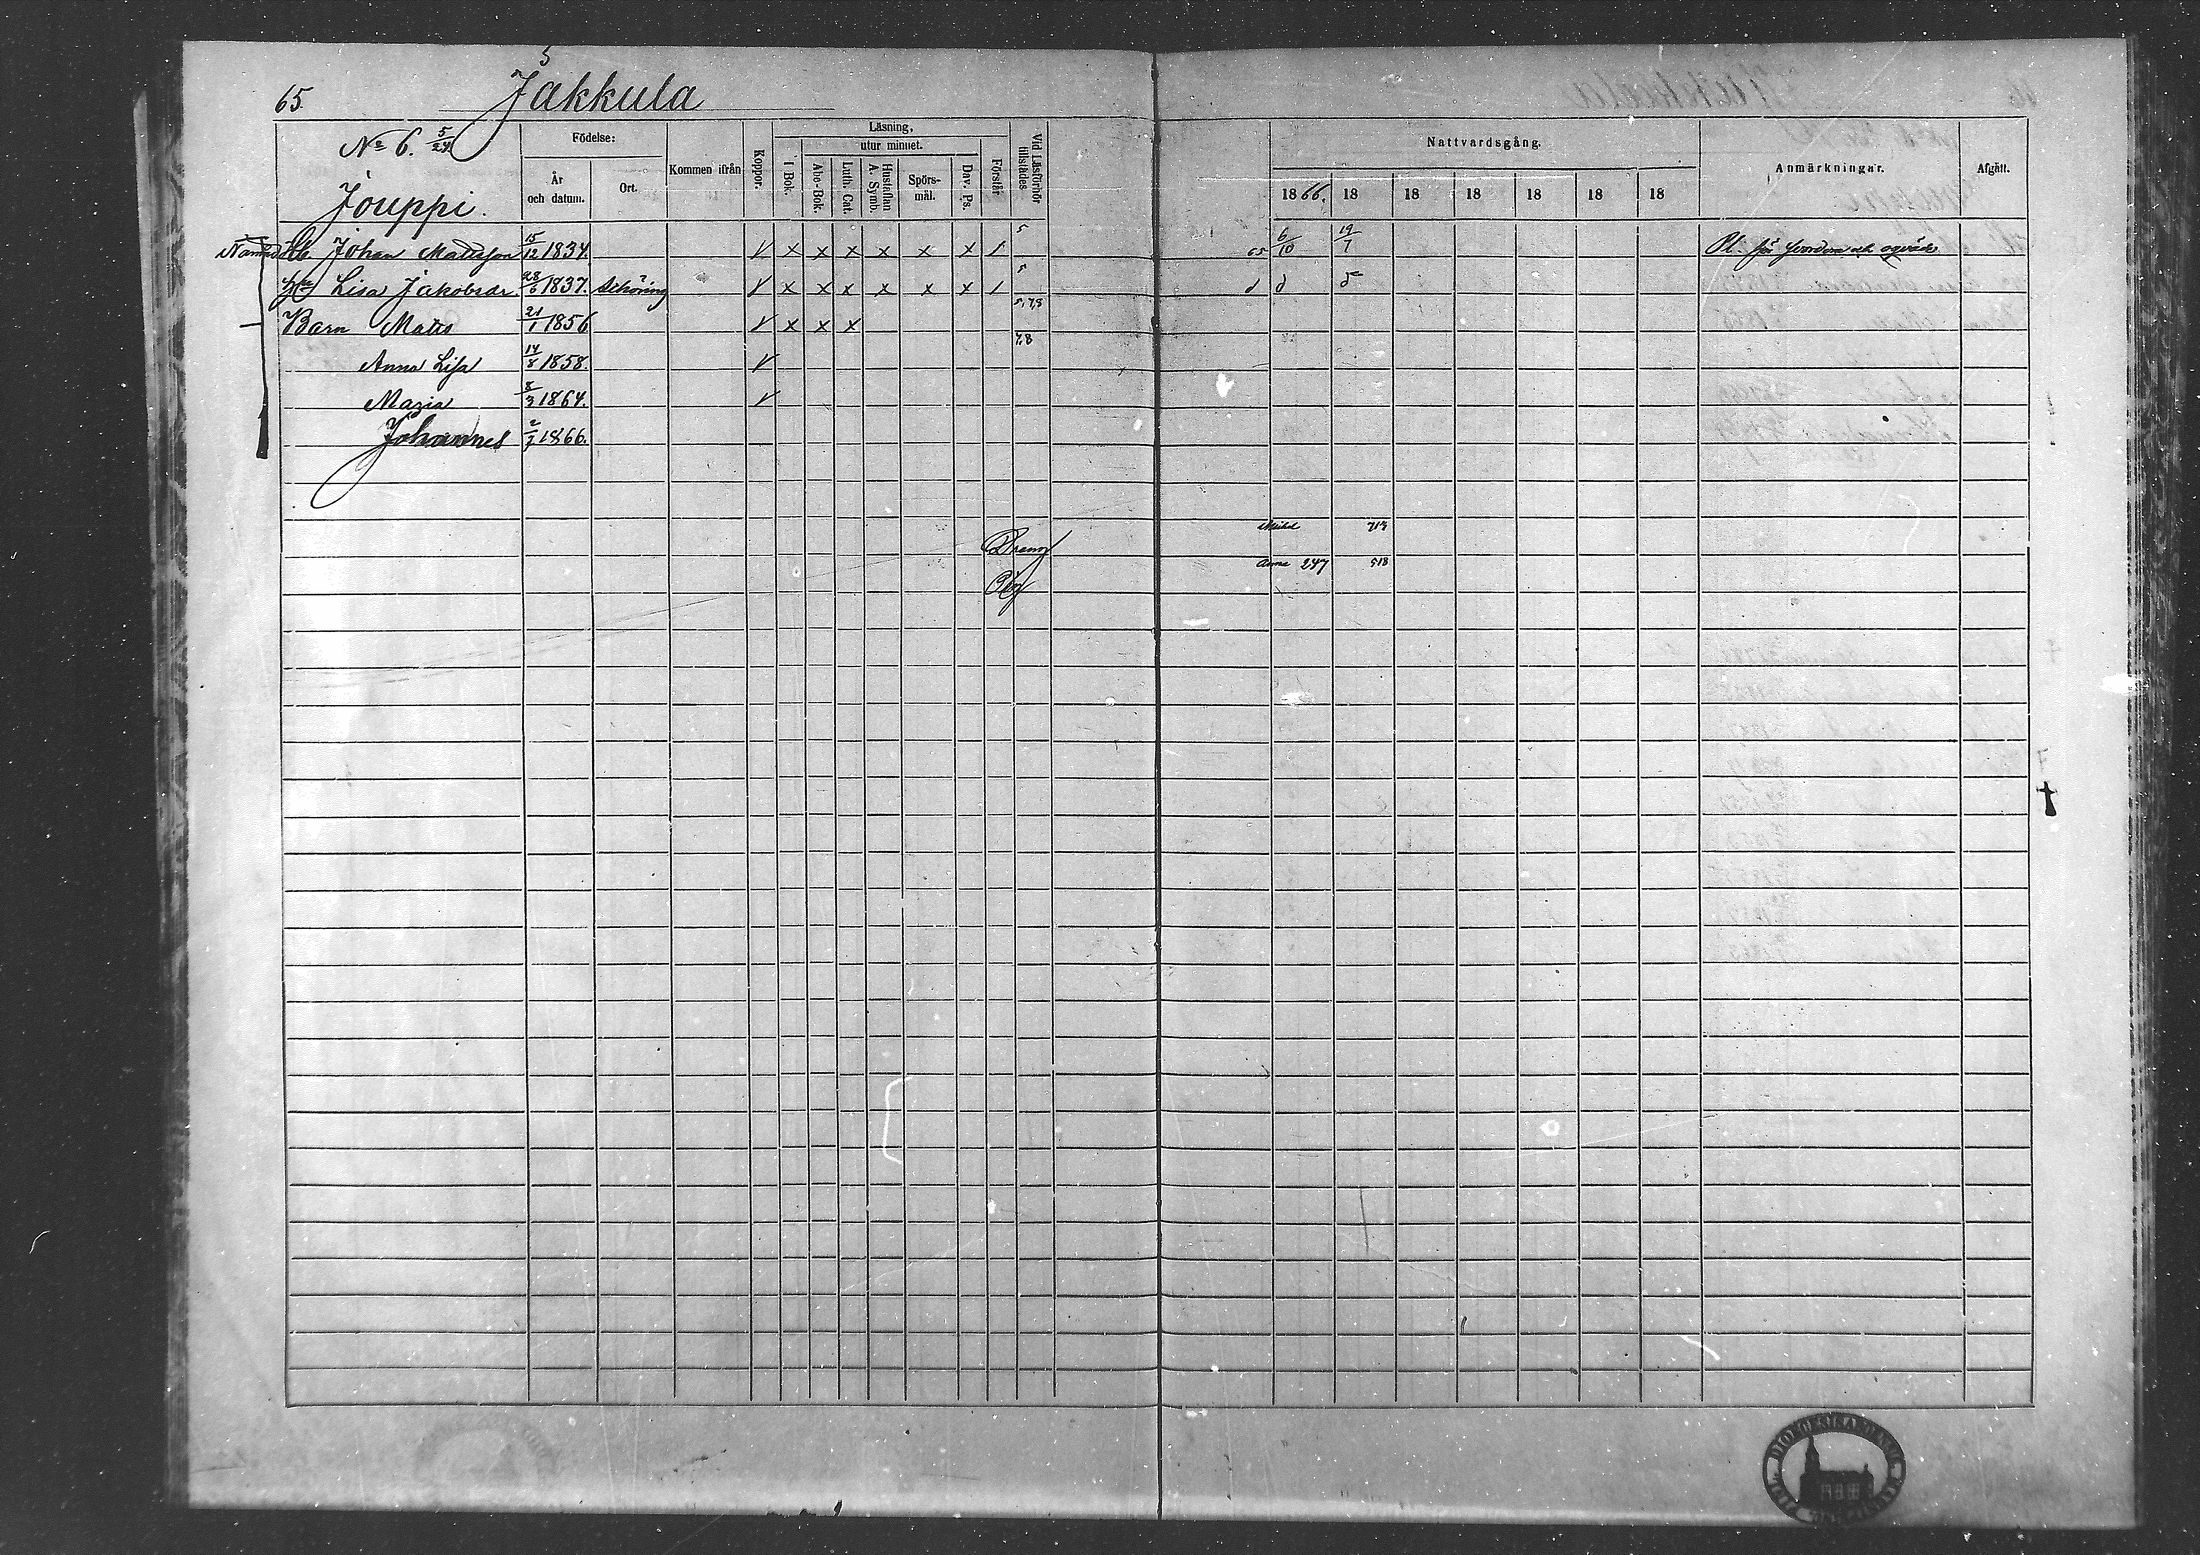 65.
5
Jakkula
Nº 6. 5/24
Jouppi.
Födelse:
År och datum.
Ort.
Kommen ifrån
Koppor.
Läsning,
utur minnet.
I Bok.
Abc-Bok.
Luth. Cat.
Hustaflan A. Symb.
Spörs-mål.
Dav. Ps.
Förstår
Vid Läsförhör tillstädes.
Nattvardsgång.
1866. 18 18 18 18 18 18
Anmärkningar.
Afgått.
Johan Mattsson 15/12 1834. V x x x x x x 1 5 65 6/10 19/7
Lisa Jakobsdr. 28/6 1837. V x x x x x x 1 5 d d
Barn Matts 21/1 1856 V x x x 5,7,8
Anna Lisa 14/8 1858. V 7,8
Maria 8/3 1864. V
Johannes 2/7 1866.
Dräng 713
Pig Anna 247 518